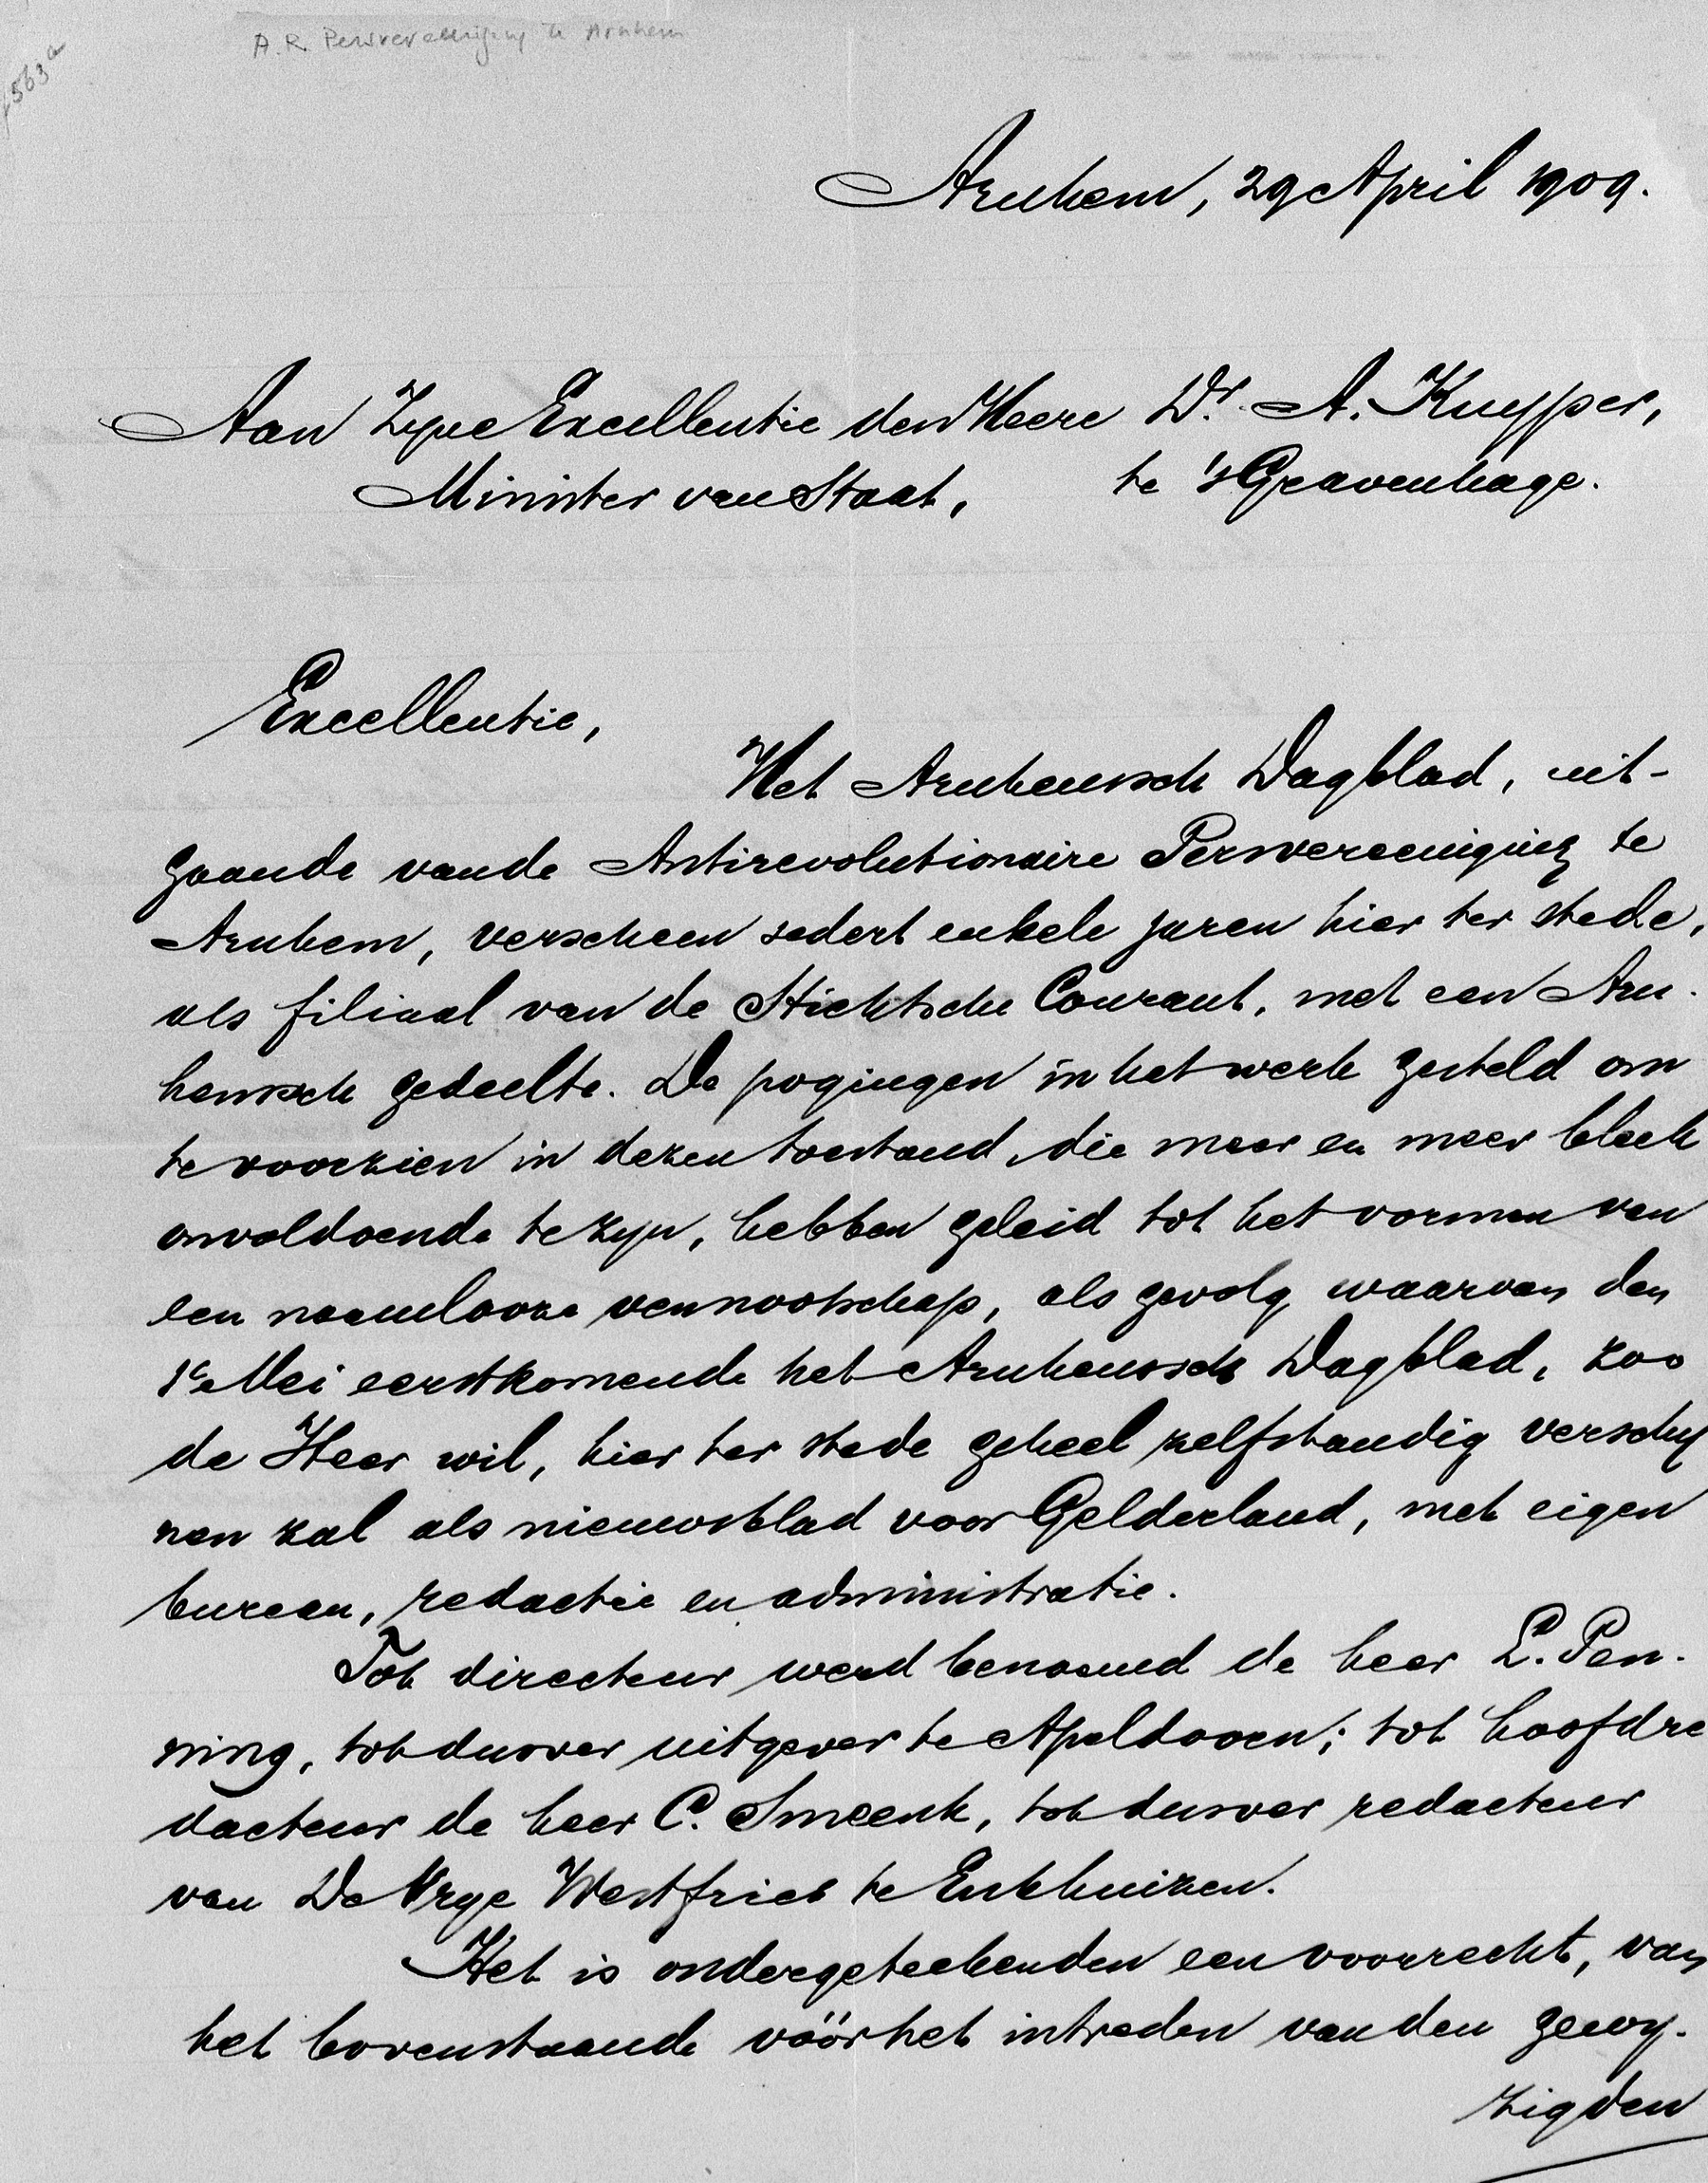 A.R. Persvereeniging te Arnhem
Arnhem, 29 April 1909.
Aan Zijne Excellentie den Heere Dr. A. Kuyper,
Minister van Staat, te 's Gravenhage.
Excellentie,
Het Arnhemsch Dagblad, uit-
gaande van de Antirevolutionaire Persvereeniging te
Arnhem, verscheen sedert enkele jaren hier ter stede,
als filiaal van de Stichtsche Courant, met een Arn-
hemsch gedeelte. De pogingen in het werk gesteld om
te voorzien in dezen toestand, die meer en meer bleek
onvoldoende te zijn, hebben geleid tot het vormen van
een naamlooze vennootschap, als gevolg waarvan den
1e Mei eerstkomende het Arnhemsch Dagblad, zoo
de Heer wil, hier ter stede geheel zelfstandig verschij
nen zal als nieuwsblad voor Gelderland, met eigen
bureau, redactie en administratie.
Tot directeur werd benoemd de heer L. Pen-
ning, tot dusver uitgever te Apeldoorn; tot hoofdre
dacteur de heer C. Smeenk, tot dusver redacteur
van De Vrije Westfries te Enkhuizen.
Het is ondergeteekenden een voorrecht, van
het bovenstaande vóór het intreden van den gewij-
zigden